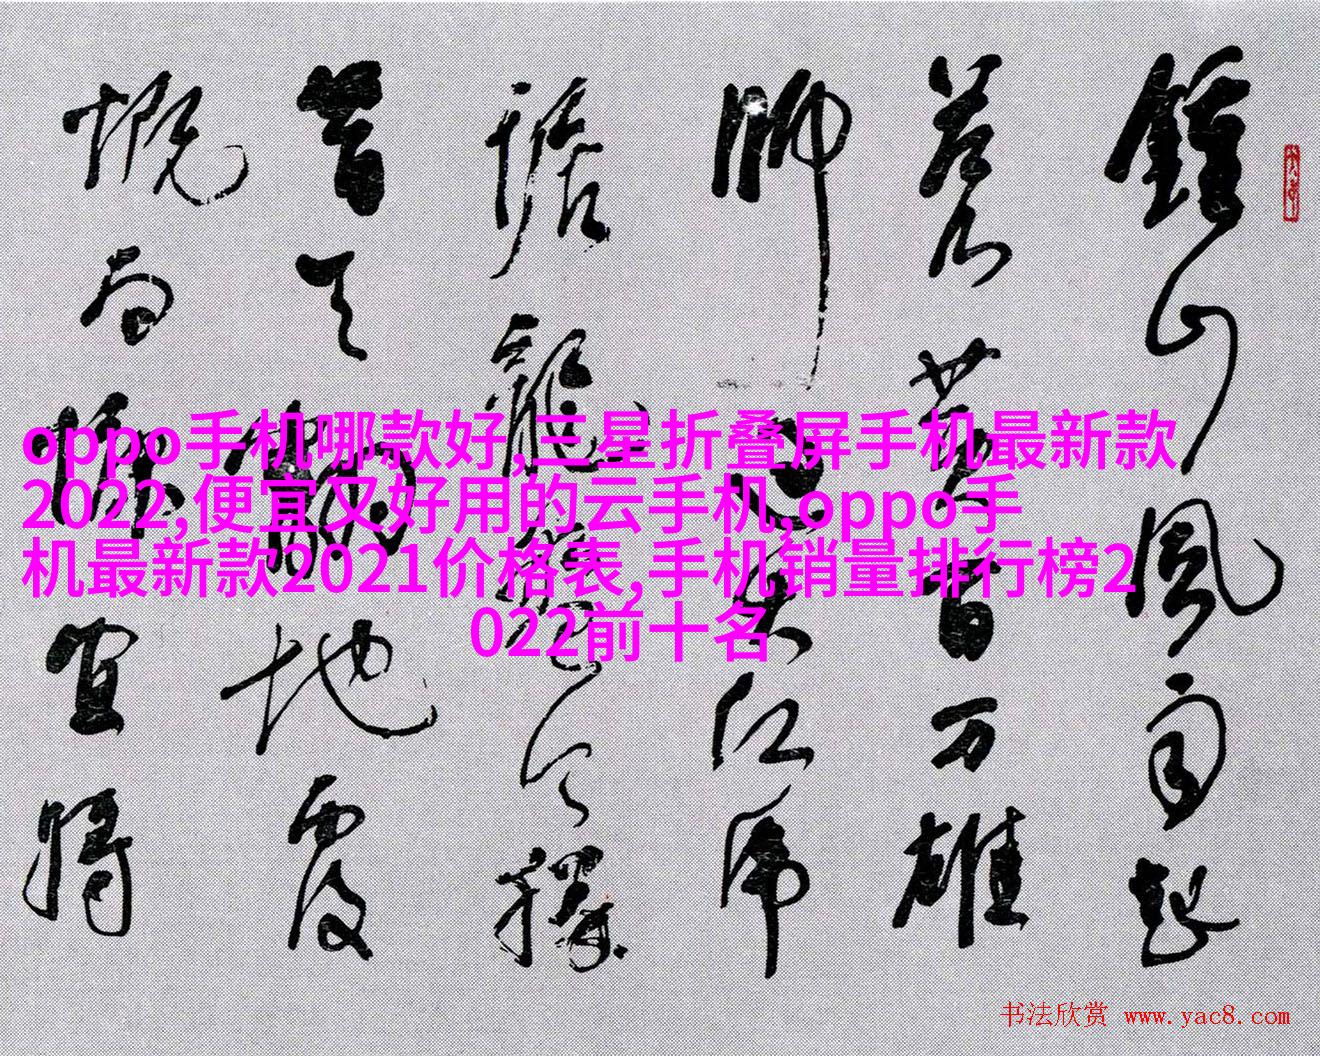 oppo手机哪款好,三星折叠屏手机最新款
2022,便宜又好用的云手机,oppo手
机最新款2021价格表,手机销量排行榜2
022前十名
鍾山風雨起
蒼黄百万雄
師過大江虎
踞龍盤今勝
昔天翻地覆
慨而慷宜将
书法欣赏 www.yac8.com